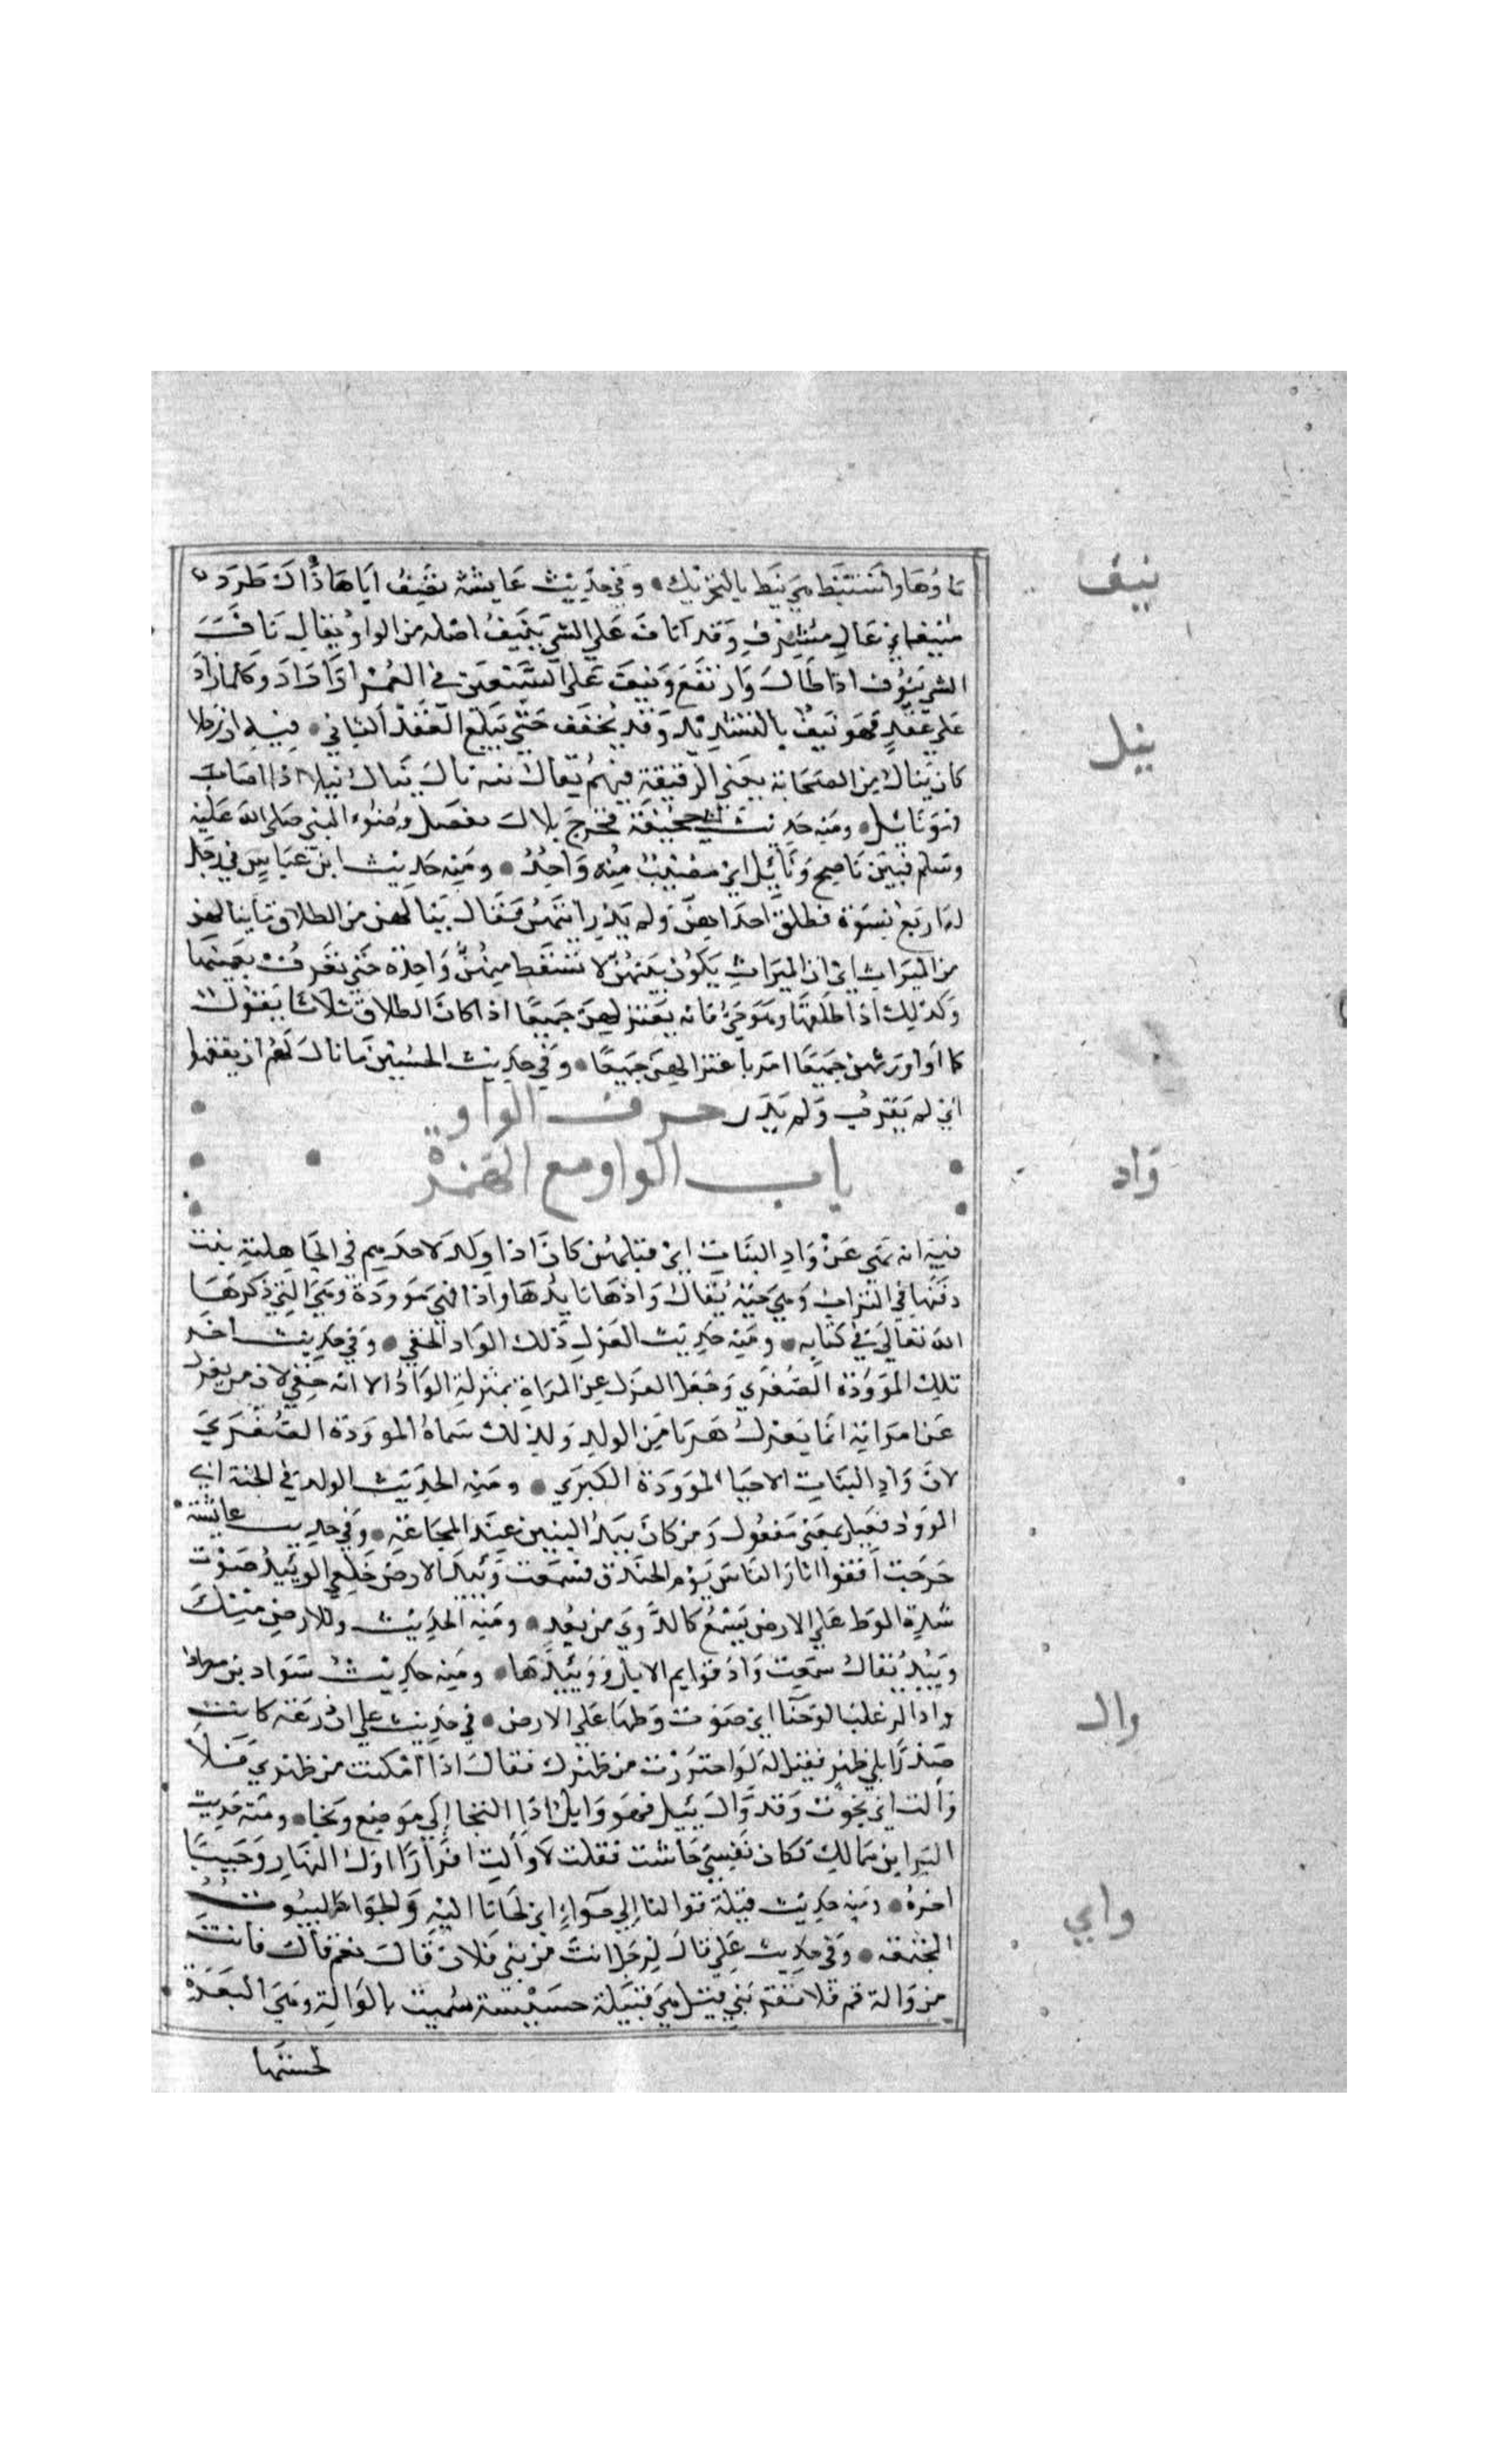 ماؤها واستنبط هي نبط بالتحريك • وفي حديث عايشة تصف اباها ذاك طود
منيف اي عال مشرف وقد اناف علي الشي ينيف اصله من الواو يقال ناف
الشي ينوف اذا طال وارتفع ونيف علي السبعين في العمر اذا زاد وكلما زاد
علي عقد فهو نيف بالتشديد وقد يخفف حتي يبلغ العقد الثاني • فيه ان رجلا
كان ينال من الصحابة يعني الوقيعة فيهم يقال منه نال ينال نيلا اذا اصاب
فهو نايل • ومنه حديث ابي جحيفة فخرج بلال بفضل وضوء النبي صلي الله عليه
وسلم فبين ناضح ونايل اي مصيب منه واخذ • ومنه حديث ابن عباس في رجل
له اربع نسوة فطلق احداهن ولم يدر ايتهن فقال ينالهن من الطلاق ما ينالهن
من الميراث اي ان الميراث يكون بينهن لا تسقط منهن واحدة حتي تعرف بعينها
وكذلك اذا طلقها وهو حي فانه يعتزلهن جميعا اذا كان الطلاق ثلاثا يقول
كما اورثهن جميعا امر باعتزالهن جميعا • وفي حديث الحسين ما نال لهم ان يفقهوا
اي لم يقرب ولم يدر حرف الواو
باب الواو مع الهمزة
فيه انه نهي عن واد البنات اي قتلهن كان اذا ولد لاحدهم في الجاهلية بنت
دفنها في التراب وهي حية يقال وادها يايدها وادا فهي موودة وهي التي ذكرها
الله تعالي في كتابه • ومنه حديث العزل ذلك الواد الخفي • وفي حديث اخر
تلك الموودة الصغري وجعل العزل عن المراة بمنزلة الواد الا انه خفي لان من يعزل
عن امراته انما يعزل هربا من الولد ولذلك سماه الموودة الصغري
لان واد البنات الاحيا الموودة الكبري • ومنه الحديث الوئيد في الجنة اي
الموود فعيل بمعني مفعول ومن كان يئد البنين عند المجاعة • وفي حديث عايشة
خرجت اقفوا اثار الناس يوم الخندق فسمعت وئيد الارض خلفي الوئيد صوت
شدة الوط علي الارض يسمع كالدوي من بعد • ومنه الحديث وللارض منك
وئيد يقال سمعت واد قوايم الابل ووئيدها • ومنه حديث سواد بن مطرف
واد الذعلب الوجنا اي صوت وطيها علي الارض • في حديث علي ان درعه كانت
صدرا بلا ظهر فقيل له لو احترزت من ظهرك فقال اذا امكنت من ظهري فلا
والت اي نجوت وقد وال يئيل فهو وايل اذا التجا الي موضع ونجا • ومنه حديث
البرا بن مالك فكان نفسي جاشت فقلت لا والت افرارا اول النهار وجبنا
اخره • ومنه حديث قيلة فوالنا الي حواء اي لجانا اليه والحواء البيوت
المجتمعة • وفي حديث علي قال لرجل انت من بني فلان قال نعم قال فانت
من والة قم فلا تقربني قيل هي قبيلة خسيسة سميت بالوالة وهي البعرة
لخستها
نيف
نيل
واد
وال
واي